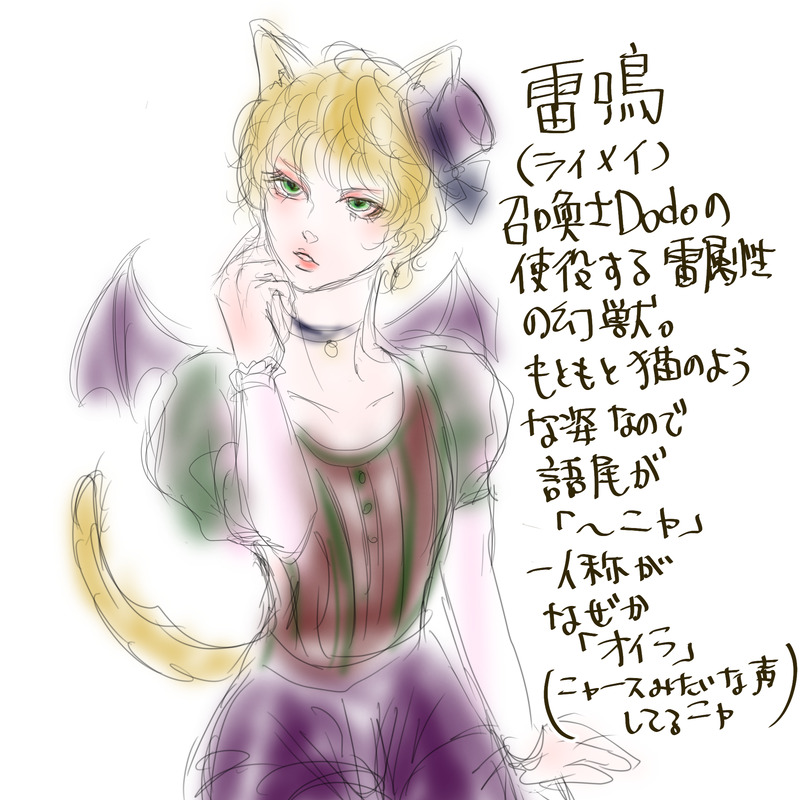 雷鳴
(ライメイ)
召喚士Dodoの
使役する雷属性
の幻獣。
もともと猫のよう
な姿なので
語尾が
「〜ニャ」
一人称が
なぜか
「オイラ」
(ニャースみたいな声
してるニャ)